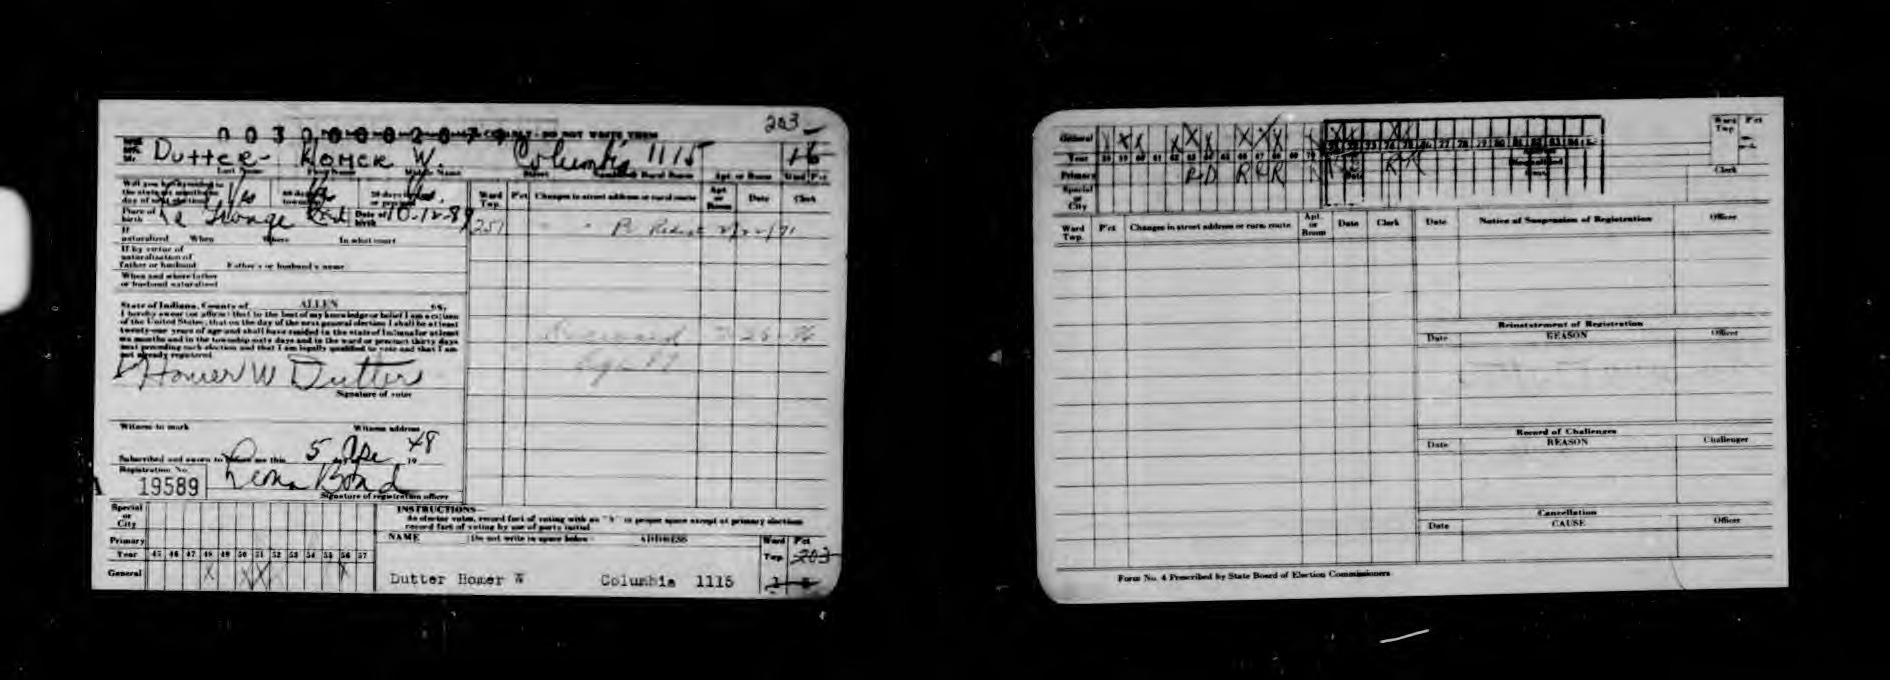 203
COMPANY - DO NOT WRITE THEM
Mr. Dutter - Homer W. Columbia 1115
Last Name First Name Middle Name Street Rural Route Apt. or Room Ward Pct
Will you have resided in the state six months on day of next election? Yes 60 days in township 30 days in precinct Yes
Place of birth La Grange Ind Date of birth 10-12-89
If naturalized When Where In what court
If by virtue of naturalization of father or husband Father's or husband's name
When and where father or husband naturalized
State of Indiana, County of ALLEN ss,
I hereby swear (or affirm) that to the best of my knowledge or belief I am a citizen
of the United States; that on the day of the next general election I shall be at least
twenty-one years of age and shall have resided in the state of Indiana for at least
six months and in the township sixty days and in the ward or precinct thirty days
next preceding such election and that I am legally qualified to vote and that I am
not already registered
Homer W Dutter
Signature of voter
Witness to mark Witness address
Subscribed and sworn to before me this 5 Apr 19 48
Registration No. 19589
Lena Bond
Signature of registration officer
Ward Twp. P'ct Changes in street address or rural route Apt. or Room Date Clerk
251 " " 2/22/71
Special or City
Primary
Year 45 46 47 48 49 50 51 52 53 54 55 56 57
General X X X X
INSTRUCTIONS
As elector votes, record fact of voting with an "X" in proper space except at primary elections
record fact of voting by use of party initial
NAME Do not write in space below ADDRESS Ward Twp. P'ct
203
Dutter Homer W Columbia 1115
General
Year 58 59 60 61 62 63 64 65 66 67 68 69 70 71 72 73 74 75 76 77 78 79 80 81 82 83 84
Primary R D R R R
Special or City
Ward Twp. P'ct
Clerk
Ward Twp. P'ct Changes in street address or rural route Apt. or Room Date Clerk
Date Notice of Suspension of Registration Officer
Reinstatement of Registration
Date REASON Officer
Record of Challenges
Date REASON Challenger
Cancellation
Date CAUSE Officer
Form No. 4 Prescribed by State Board of Election Commissioners